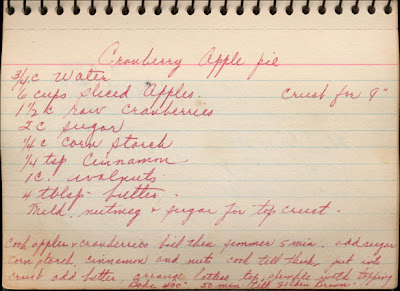 Cranberry Apple pie
3/4 c Water
6 cups Sliced Apples. Crust for 9"
1 1/2 c raw cranberries
2 c sugar
1/4 c corn starch
1/4 tsp Cinnamon
1 c. walnuts
4 tblsp butter.
Milk, nutmeg & sugar for top crust.
Cook apples & cranberries boil then simmer 5 min. add sugar
corn starch, cinnamon and nuts. cool till thick, put into
crust add butter. arrange lattice top, sprinkle with topping
Bake 400° 50 min till golden brown.